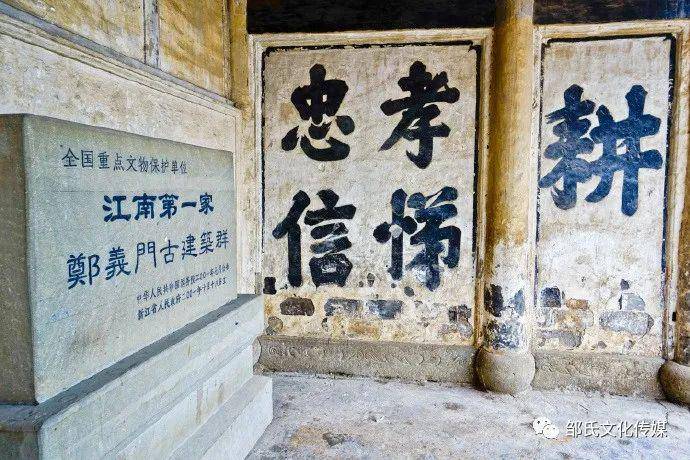 全国重点文物保护单位
江南第一家
鄭義門古建築群
中华人民共和国国务院二00一年月公布
浙江省人民政府二00一年十月十八日立
孝悌
忠信
耕
邹氏文化传媒